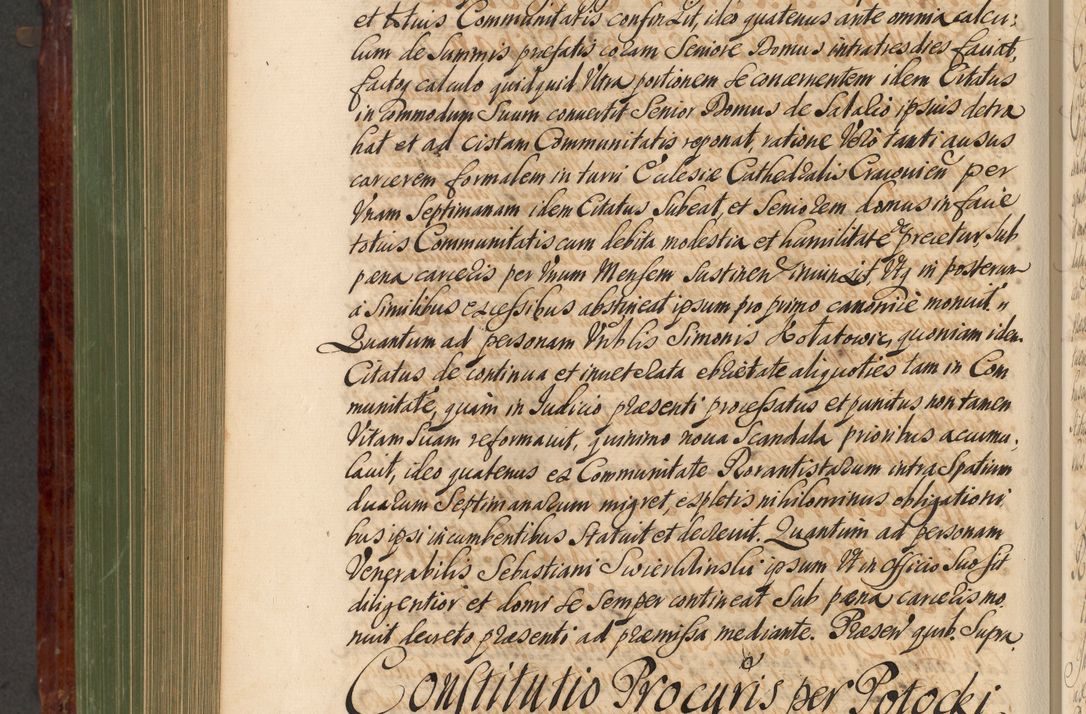 et totius Communitatis confinxit, ideo quatenus ante omnia calcu:
lum de Summis præfatis coram Seniore Domus intra tres dies faciat,
factoq calculo quidquid Ultra portionem se concernentem idem Citatus
in Commodum Suum convertit Senior Domus de Salario ipsius detra
hat et ad Cistam Communitatis reponat, ratione Vero tanti ausus
carcerem formalem in turri Ecclesiæ Cathedralis Cracovien per
Vnam Septimanam idem Citatus Subeat, et Seniorem domus in facie
totius Communitatis cum debita modestia et humilitate deprecetur, Sub
pæna carceris per Vnum Mensem Sustinen iniunxit, Vtq in posterum
a Similibus excessibus abstineat ipsum pro primo canonice monuit.
Quantum ad personam Vnblis Simonis Kołatowic, quoniam idem
Citatus de continua et inveterata ebrietate aliquoties tam in Com
munitate, quam in Iudicio præsenti processatus et punitus non tamen
Vitam Suam reformavit, quinimo nova Scandala prioribus accumu,
lavit, ideo quatenus ex Communitate Rorantistarum intra Spatium
duarum Septimanarum migret, expletis nihilominus obligationi
bus ipsi incumbentibus Statuit et decrevit. Quantum ad personam
Venerabilis Sebastiani Swierklinski ipsum Vt in officio Suo sit
diligentior et domi se Semper contineat Sub pæna carceris mo
nuit decreto præsenti ad præmissa mediante. Præsen quib. Supra.
Constitutio Procuris per Potocki.